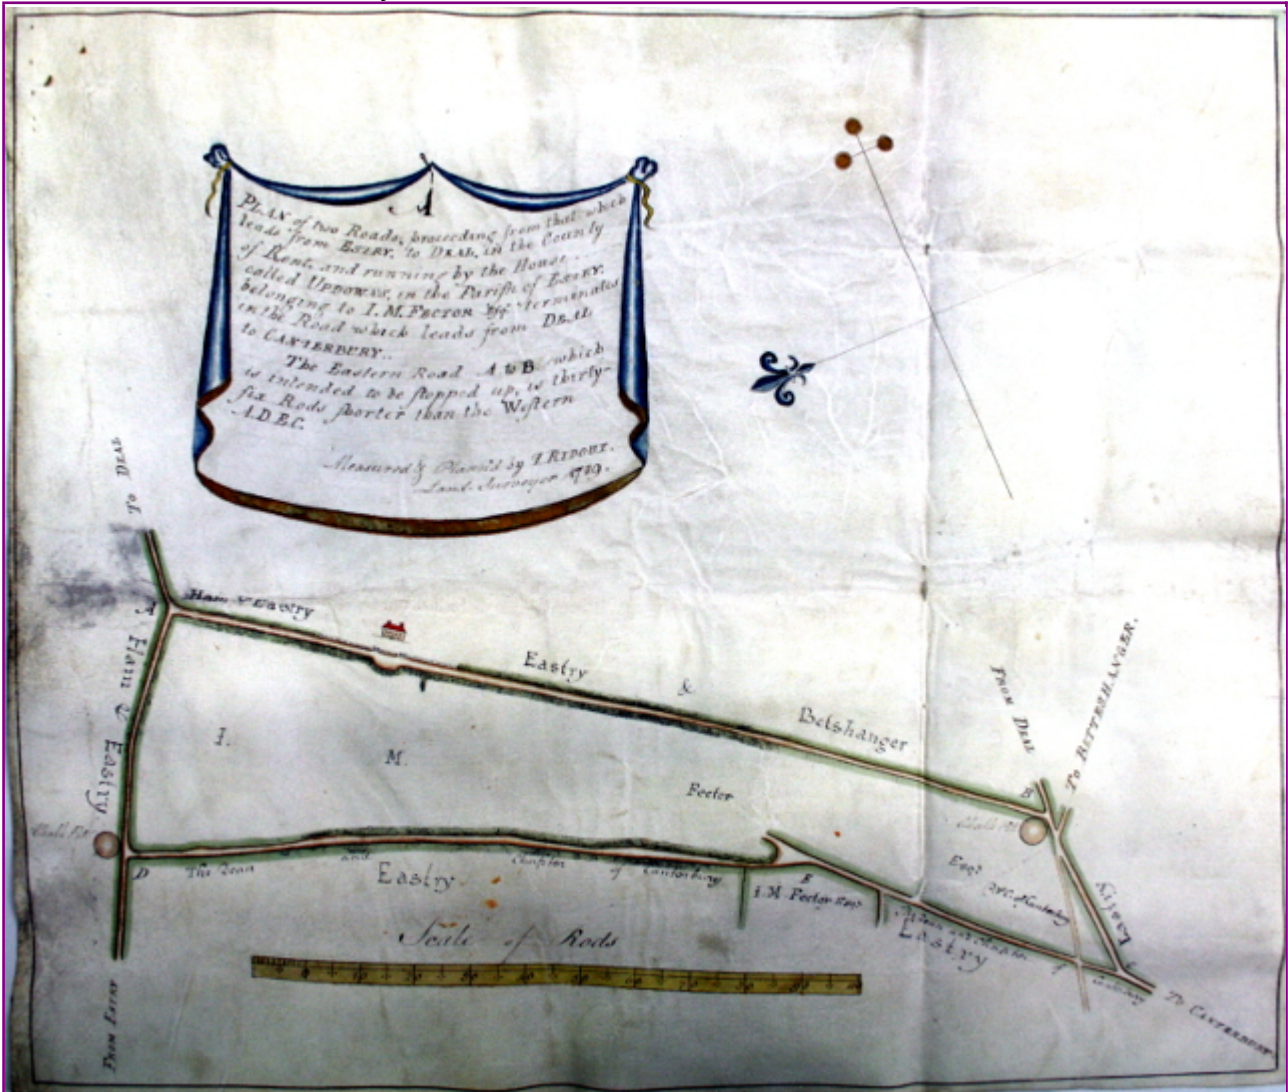 A
PLAN of two Roads, proceeding from that which
leads from ESTRY, to DEAL, in the County
of Kent, and running by the House
called UPDOWNS, in the Parish of ESTRY,
belonging to I. M. FECTOR Esq terminates
in the Road which leads from DEAL
to CANTERBURY..
The Eastern Road A to B which
is intended to be stopped up, is thirty-
six Rods shorter than the Western
A.D.E.C.
Measured & Plann'd by T. RIDOUT.
Land Surveyor
TO DEAL
A
Ham & Eastry
Ham & Eastry
Eastry
&
Betshanger
FROM DEAL
TO BETTESHANGER.
B
I.
M.
Fector
Chalk Pit
Chalk Pit
D
The Dean
and
Chapter
of Canterbury
Eastry
E
I. M. Fector Esqr
Esqr
Eastry
To CANTERBURY
Scale of Rods
FROM ESTRY